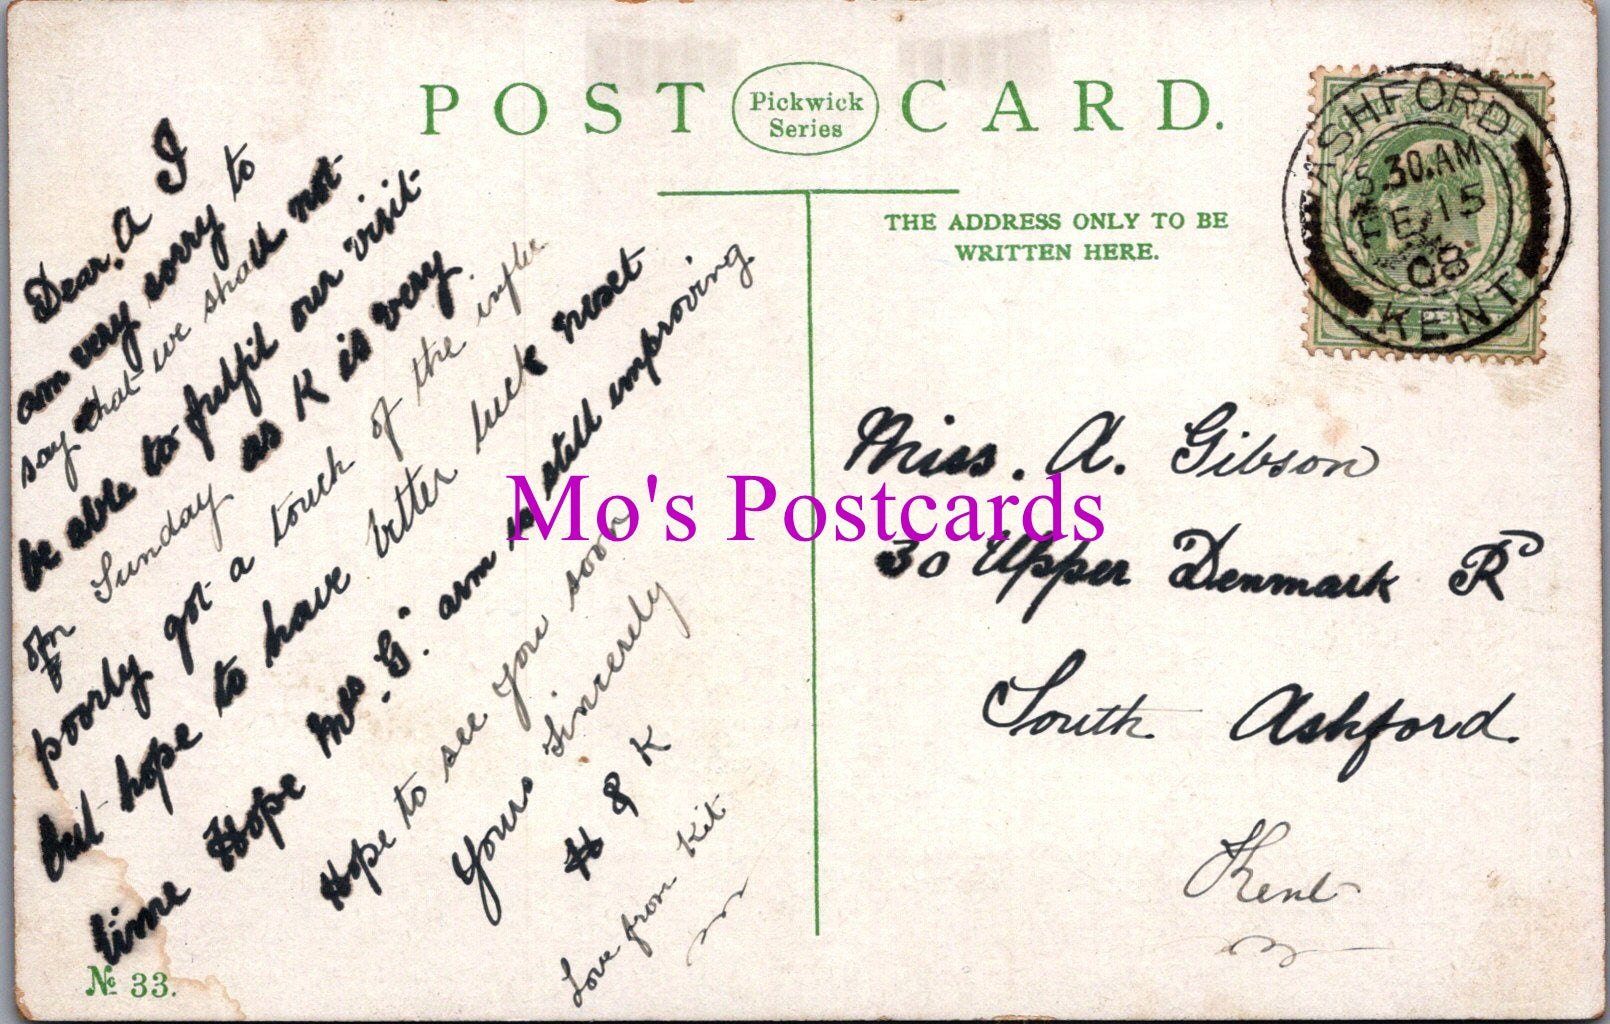 POST CARD.
Pickwick
Series
THE ADDRESS ONLY TO BE
WRITTEN HERE.
ASHFORD
5.30.AM
FE 15
08
KENT
Dear. A I
am very sorry to
say that we shall not
be able to fulfil our visit
on Sunday as K is very
poorly got a touch of the influ
but hope to have better luck next
time Hope Mrs. G. arm is still improving.
Hope to see you soon
Yours Sincerely
H & K
Love from Kit
Miss. A. Gibson
30 Upper Denmark Rd
South Ashford.
Kent
Mo's Postcards
No 33.